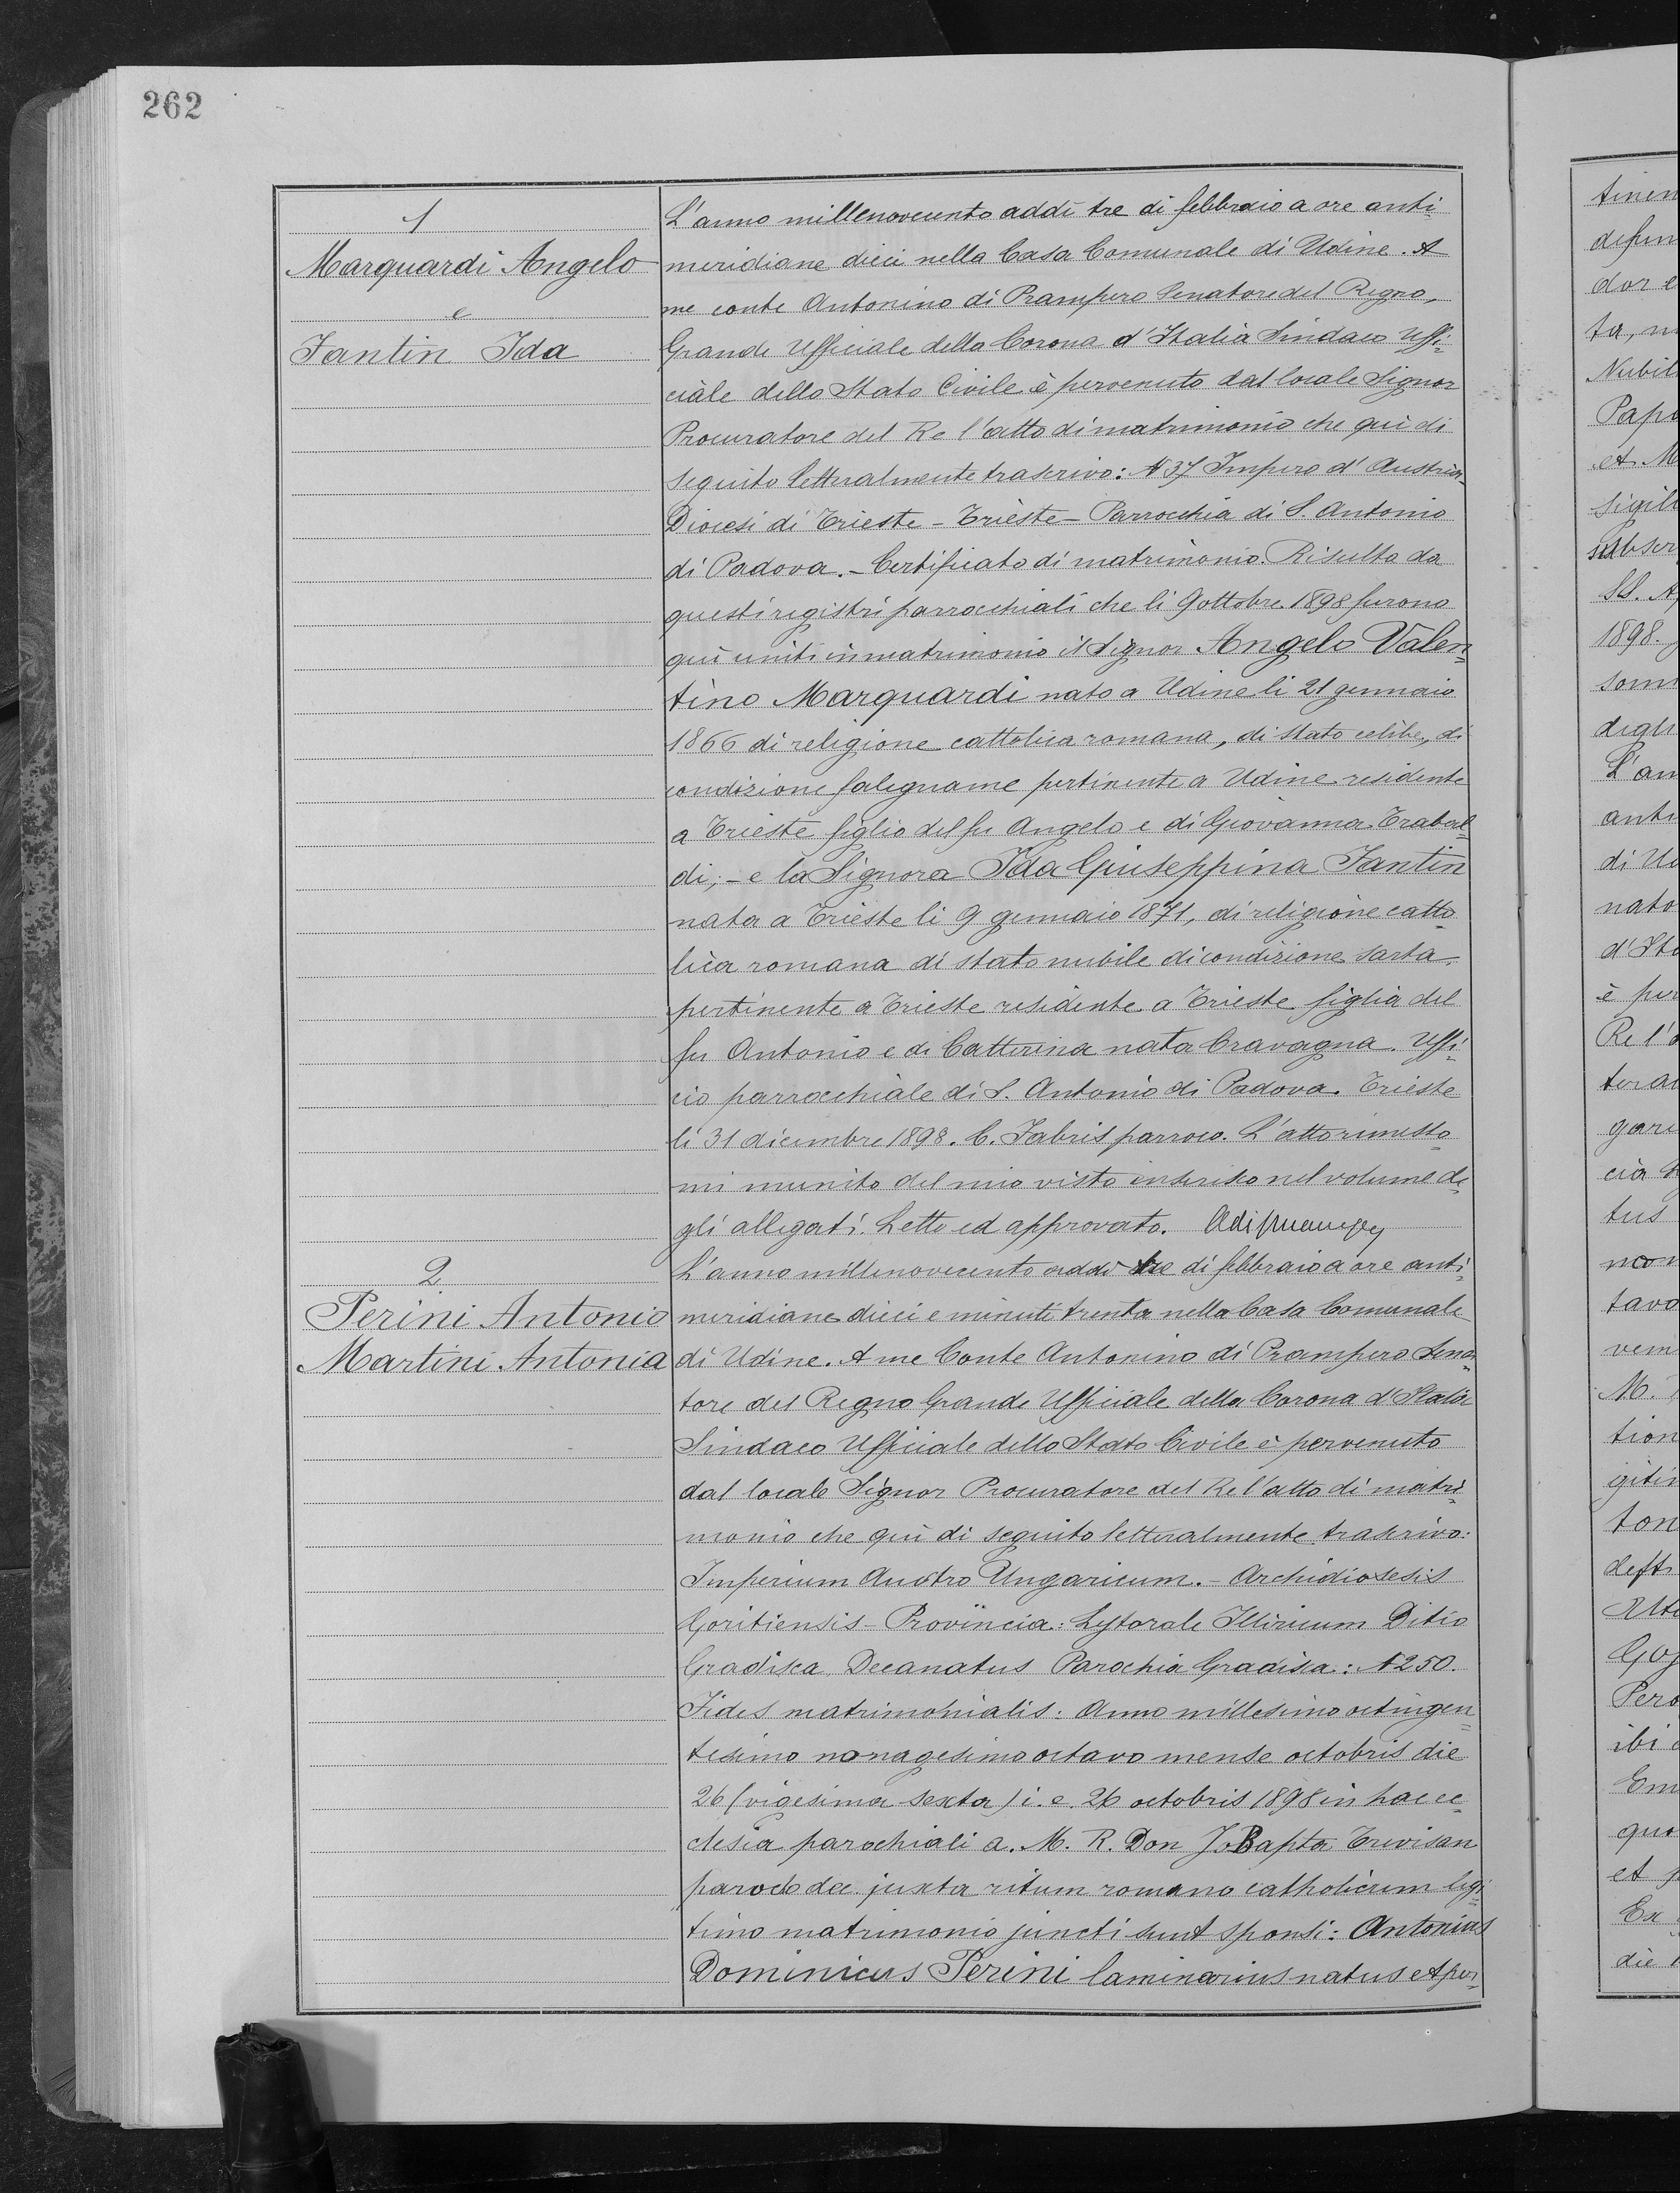 262
1
Marquardi Angelo
e
Fantin Ida
L'anno millenovecento addì tre di febbraio a ore anti-
meridiane dieci nella Casa Comunale di Udine. A
me conte Antonino di Prampero Senatore del Regno,
Grande Ufficiale della Corona d'Italia Sindaco Uffi-
ciale dello Stato Civile è pervenuto dal locale Signor
Procuratore del Re l'atto di matrimonio che quì di
seguito letteralmente trascrivo: N 37 Impero d'Austria
Diocesi di Trieste - Trieste - Parrocchia di S. Antonio
di Padova. - Certificato di matrimonio. Risulta da
questi registri parrocchiali che li 9 ottobre 1898 furono
quì uniti in matrimonio il Signor Angelo Valen-
tino Marquardi nato a Udine li 21 gennaio
1866 di religione cattolica romana, di stato celibe, di
condizione falegname pertinente a Udine residente
a Trieste figlio del fu Angelo e di Giovanna Trabal-
di; - e la Signora Ida Giuseppina Fantin
nata a Trieste li 9 gennaio 1871, di religione catto-
lica romana di stato nubile di condizione sarta,
pertinente a Trieste residente a Trieste figlia del
fu Antonio e di Catterina nata Cravagna. Uffi-
cio parrocchiale di S. Antonio di Padova. Trieste
li 31 dicembre 1898. C. Fabris parroco. L'atto rimesso-
mi munito del mio visto inserisco nel volume de-
gli allegati. Letto ed approvato.
2
Perini Antonio
Martini Antonia
L'anno millenovecento addì tre di febbraio a ore anti-
meridiane dieci e minuti trenta nella Casa Comunale
di Udine. A me Conte Antonino di Prampero Sena-
tore del Regno Grande Ufficiale della Corona d'Italia
Sindaco Ufficiale dello Stato Civile è pervenuto
dal locale Signor Procuratore del Re l'atto di matri-
monio che quì di seguito letteralmente trascrivo:
Imperium Austro Ungaricum. - Archidiosesis
Goritiensis - Provincia: Lytorale Illiricum Ditio
Gradisca Decanatus Parochia Gradisca: N 250.
Fides matrimonialis: Anno millesimo octingen-
tesimo nonagesimo octavo mense octobris die
26 (vigesima sexta) i. e. 26 octobris 1898 in hac ec-
clesia parochiali a. M. R. Don Jo Bapta Trevisan
paroco dec. juxta ritum romano catholicum legi-
timo matrimonio juncti sunt sponsi: Antonius
Dominicus Perini laminarius natus et per-